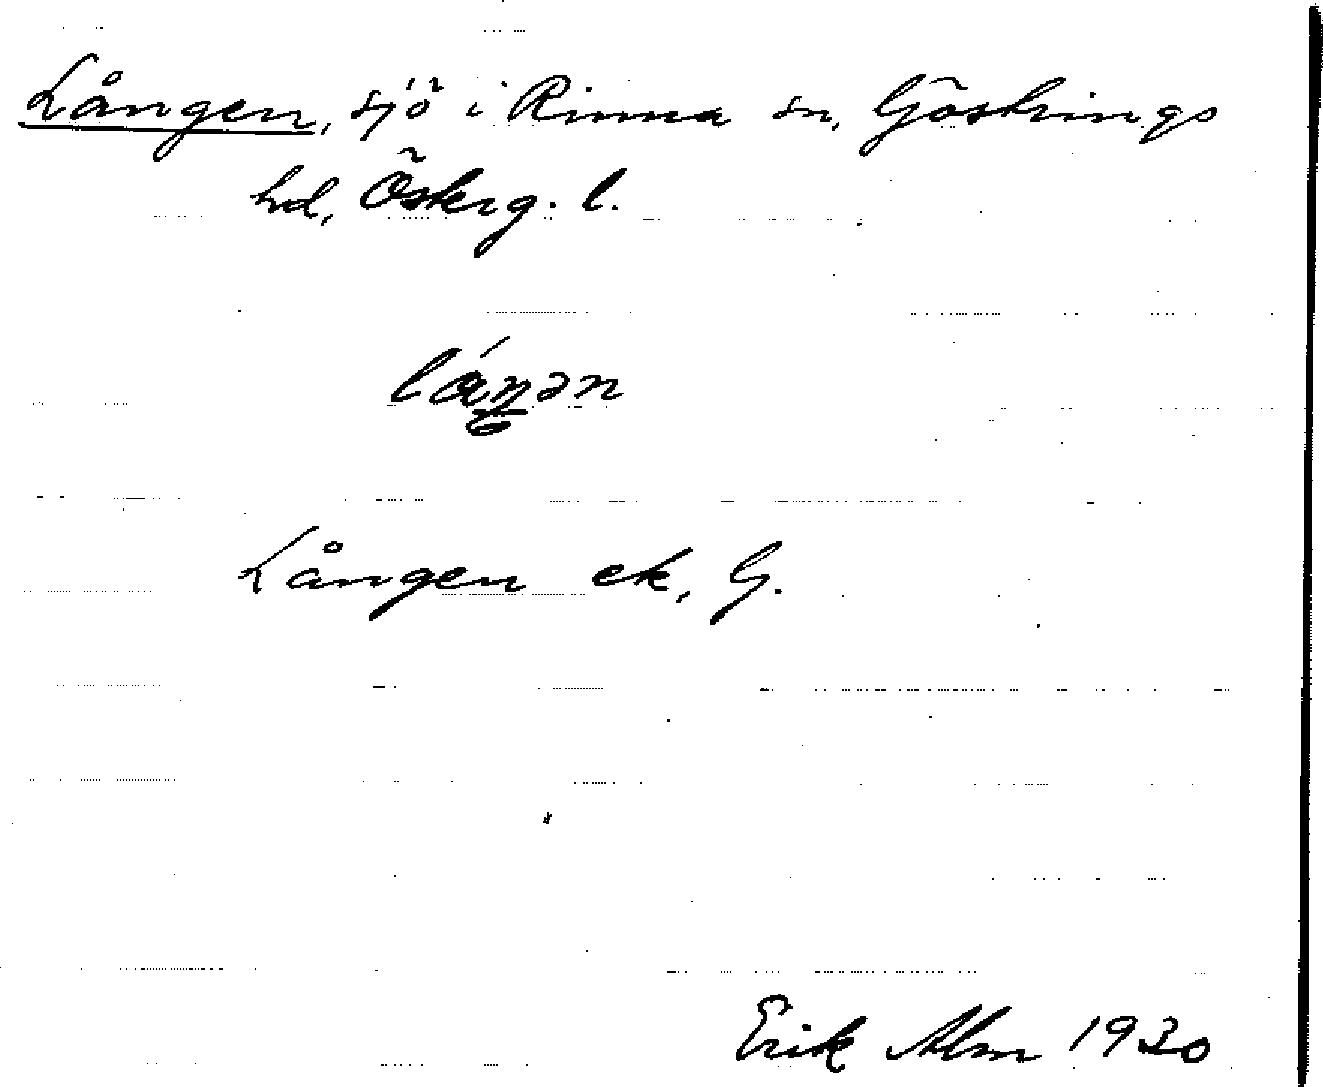 Lången, sjö i Rinna sn, Göstrings
hd, Österg. l.
Lången ek, G.
Erik Alm 1930